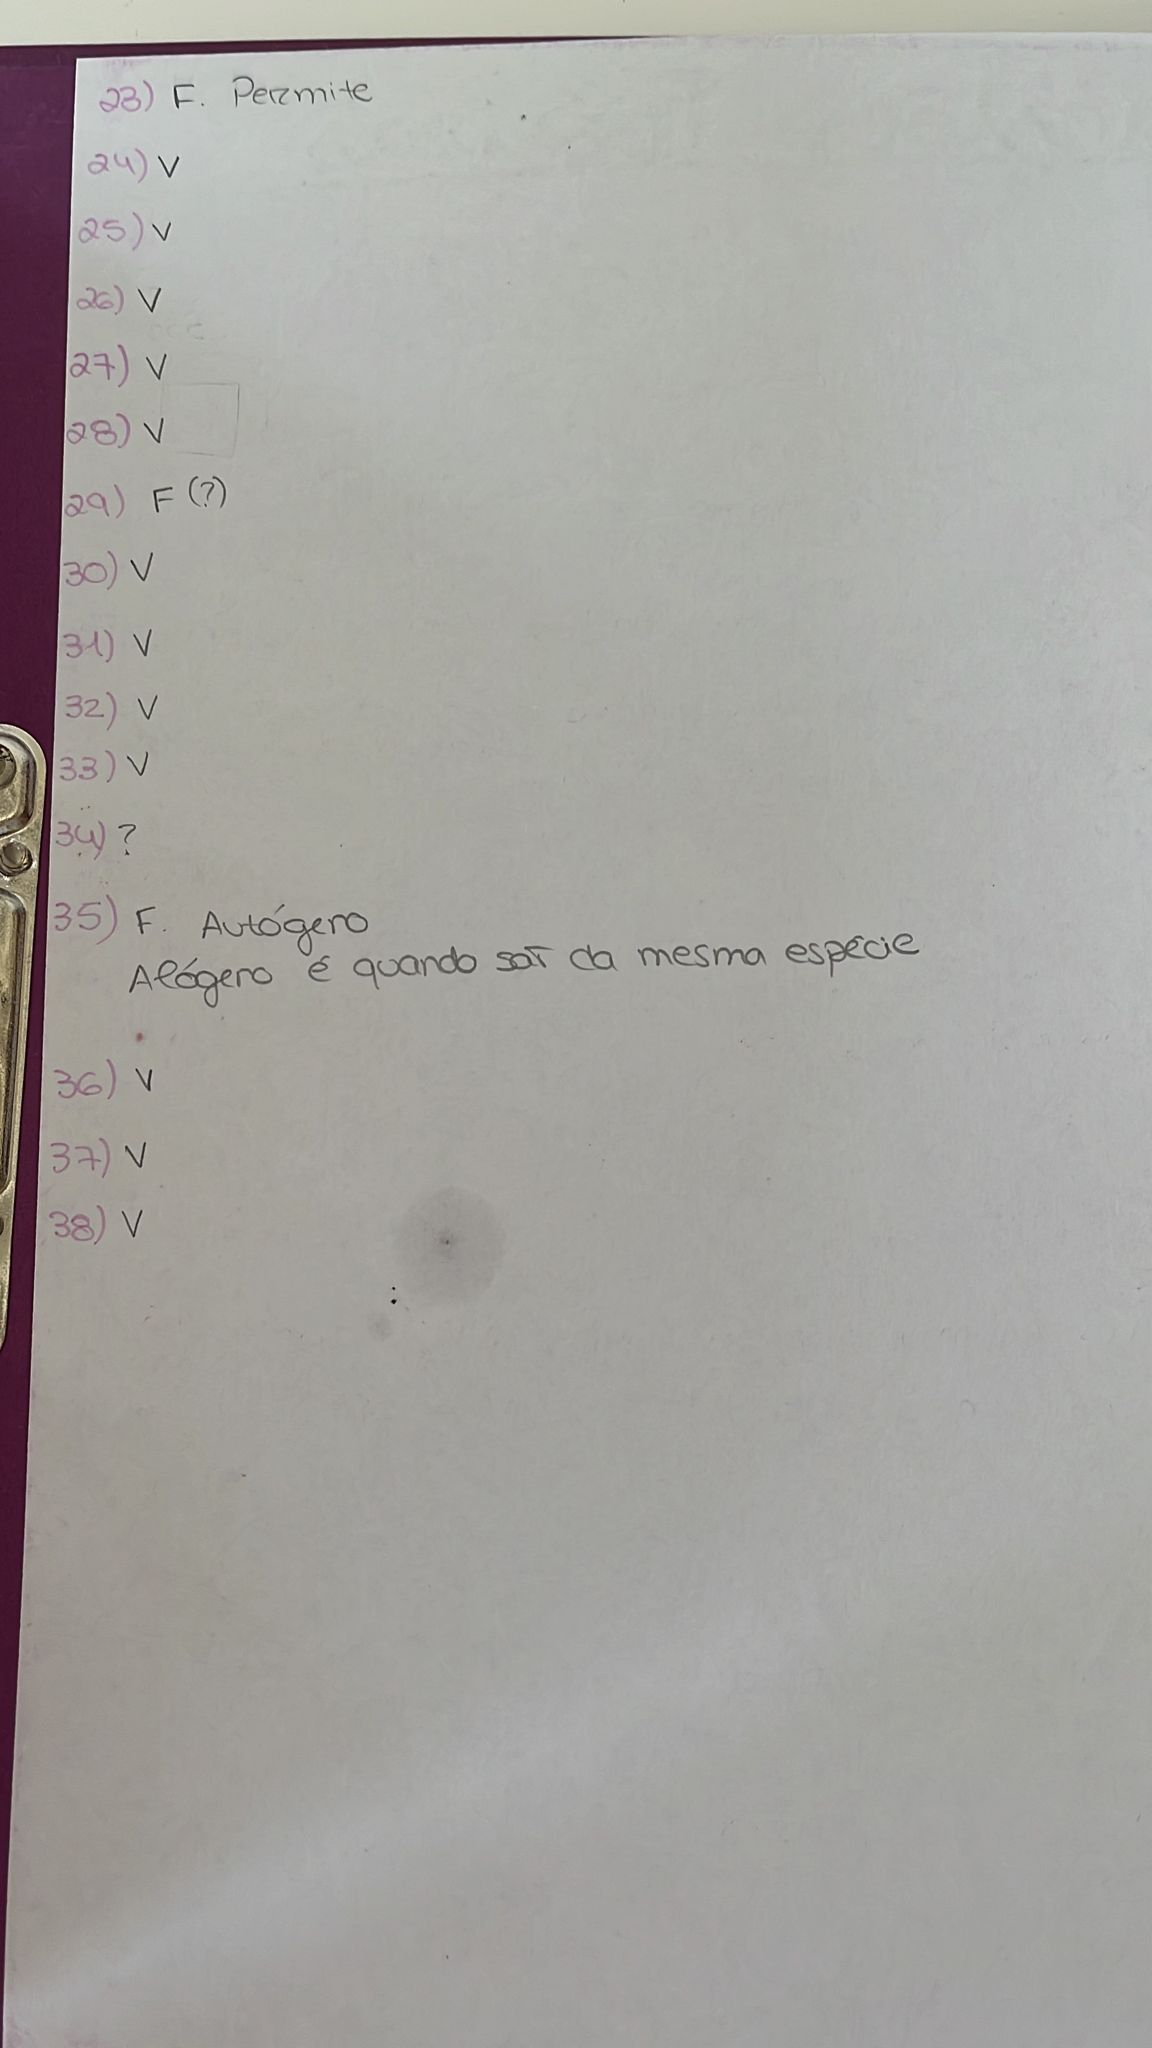 23) F. Permite
24) V
25) V
26) V
27) V
28) V
29) F (?)
30) V
31) V
32) V
33) V
34) ?
35) F. Autógero
Alógero é quando sai da mesma espécie
36) V
37) V
38) V